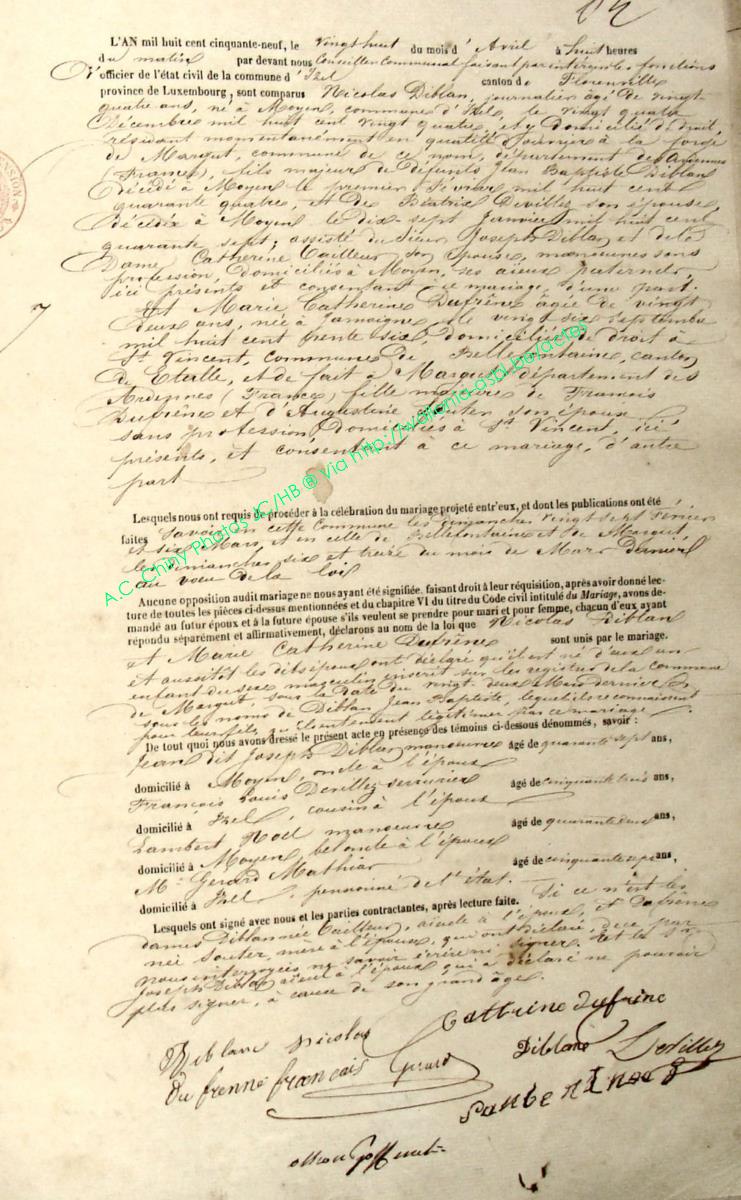 L'AN mil huit cent cinquante-neuf, le vingt huit du mois d'Avril à huit heures
du matin par devant nous Conseiller communal faisant par interim les fonctions
d'officier de l'état civil de la commune d'Izel canton de Florenville
province de Luxembourg, sont comparus Nicolas Diblan, journalier âgé de vingt-
quatre ans, né à Moyen, commune d'Izel, le vingt quatre
Décembre mil huit cent vingt quatre, et y domicilié de droit,
résidant momentanément en qualité d'ouvrier à la forge
de Margut, commune de ce nom, département des Ardennes
(France), fils majeur de défunts Jean Baptiste Diblan
décédé à Moyen le premier Février mil huit cent
quarante quatre, et de Béatrix Devillez son épouse,
décédée à Moyen le dix-sept Janvier mil huit cent
quarante sept; assisté du Sieur Joseph Diblan et de la
Dame Catherine Cailleux son épouse, manœuvres sans
profession, domiciliés à Moyen, ses aïeux paternels,
ici présents et consentant ce mariage, d'une part.
Et Marie Catherine Dufrène âgée de vingt
deux ans, née à Jamoigne, le vingt six Septembre
mil huit cent trente six, domiciliée de droit à
St Vincent, commune de Bellefontaine, canton
de Etalle, et de fait à Margut, département des
Ardennes (France) fille majeure de François
Dufrène et d'Augustine Souten son épouse
sans profession, domiciliés à St Vincent, ici
présents, et consentant à ce mariage, d'autre
part
Lesquels nous ont requis de procéder à la célébration du mariage projeté entr'eux, et dont les publications ont été
faites savoir en cette Commune les dimanches vingt sept Février
et six Mars, et en celle de Bellefontaine et de Margut,
les dimanches six et treize du mois de Mars dernier
au vœu de la loi
Aucune opposition audit mariage ne nous ayant été signifiée, faisant droit à leur réquisition, après avoir donné lec-
ture de toutes les pièces ci-dessus mentionnées et du chapitre VI du titre du Code civil intitulé du Mariage, avons de-
mandé au futur époux et à la future épouse s'ils veulent se prendre pour mari et pour femme, chacun d'eux ayant
répondu séparément et affirmativement, déclarons au nom de la loi que Nicolas Diblan
et Marie Catherine Dufrène sont unis par le mariage.
et aussitôt les dits époux ont déclaré qu'il est né d'eux un
enfant du sexe masculin inscrit sur les registres de la commune
de Margut, sous la date du vingt-deux Mars dernier
sous les noms de Diblan Jean Baptiste, lequel ils reconnaissent
pour leur fils, qu'ils entendent légitimer par ce mariage.
De tout quoi nous avons dressé le présent acte en présence des témoins ci-dessous dénommés, savoir :
Jean dit Joseph Diblan manœuvre âgé de quarante sept ans,
domicilié à Moyen, oncle à l'époux
François Louis Devillez serrurier âgé de cinquante trois ans,
domicilié à Izel, cousin à l'époux
Lambert Noël manœuvre âgé de quarante deux ans,
domicilié à Moyen, bel oncle à l'époux
Mr Gérard Mathias âgé de cinquante sept ans,
domicilié à Izel, pensionné de l'état.
Lesquels ont signé avec nous et les parties contractantes, après lecture faite. Si ce n'est les
dames Diblan née Cailleux, aïeule à l'époux, et Dufrène
née Souten, mère à l'épouse, qui ont déclaré, de ce par
nous interrogées, ne savoir écrire ni signer. Et le Sr
Joseph Diblan aïeul à l'époux qui a déclaré ne pouvoir
plus signer, à cause de son grand âge.
Cattrine dufrine
Diblanc Nicolas
Diblanc Devillez
Du frenne françois Gerard
Lambe rt Noel
A.C. Chiny Photos JC/HB ® via http://wallonia-asbl.be/actes